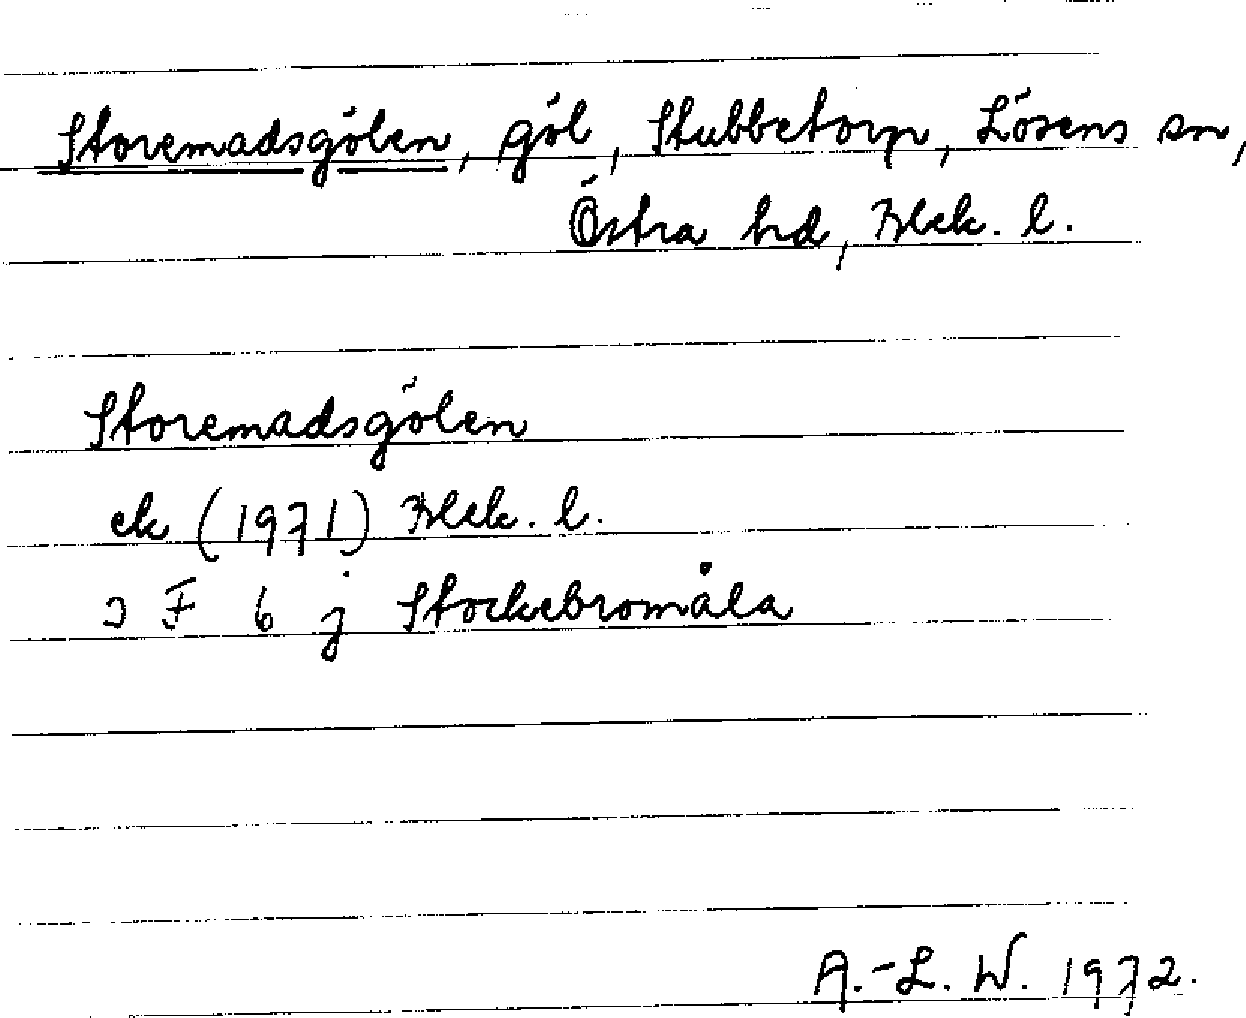 Storemadsgölen, göl, Stubbetorp, Lösens sn,
Östra hd, Blek. l.
Storemadsgölen
ek (1971) Blek. l.
3 F 6 j Stockebromåla
A.-L. W. 1972.